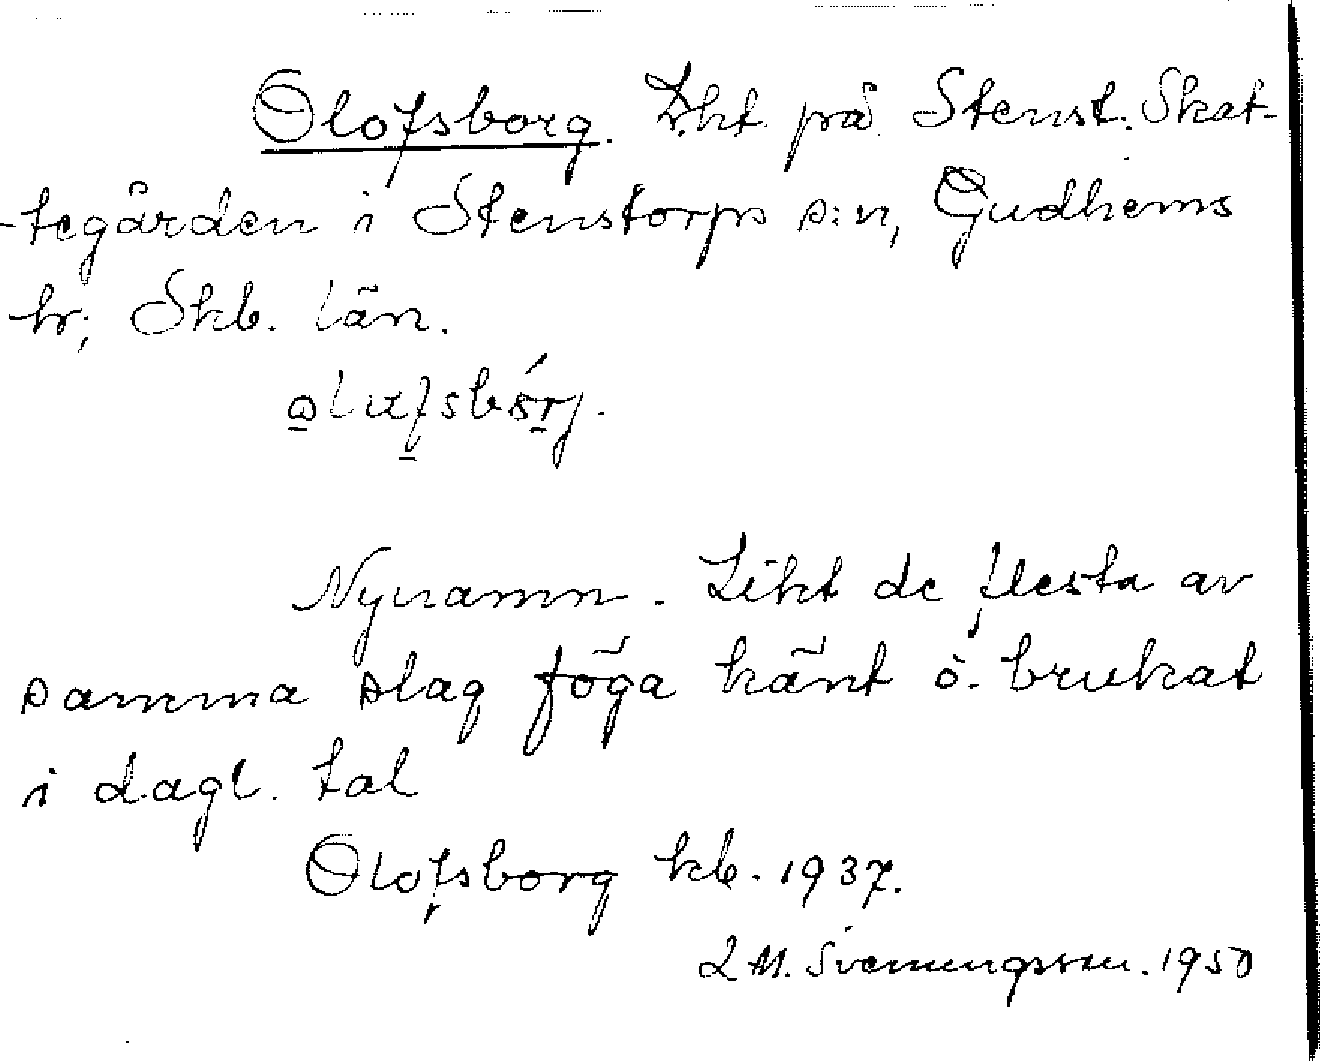 Olofsborg. Lht på Stenst. Skat-
-tegården i Stenstorps s:n, Gudhems
hr, Skb. län.
Nynamn. Likt de flesta av
samma slag föga känt o. brukat
i dagl. tal
Olofsborg kb. 1937.
L M. Svenungsson. 1950